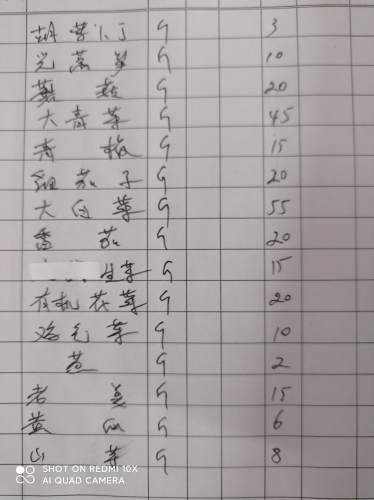 胡萝卜丁 3
光莴笋 10
蘑菇 20
大青菜 45
青椒 15
细茄子 20
大白菜 55
番茄 20
生菜 15
有机花菜 20
鸡毛菜 10
葱 2
老姜 15
黄瓜 6
山芋 8
SHOT ON REDMI 10X
AI QUAD CAMERA